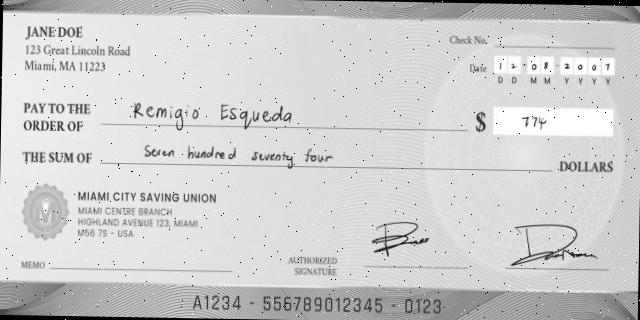 JANE DOE
123 Great Lincoln Road
Miami, MA 11223
Check No.
Date 12-08-2007
D D M M Y Y Y Y
PAY TO THE
ORDER OF Remigio Esqueda $ 774
THE SUM OF Seven hundred seventy four DOLLARS
MIAMI CITY SAVING UNION
MIAMI CENTRE BRANCH
HIGHLAND AVENUE 123, MIAMI
M56 7S - USA
MEMO
AUTHORIZED
SIGNATURE
A1234 - 556789012345 - 0123